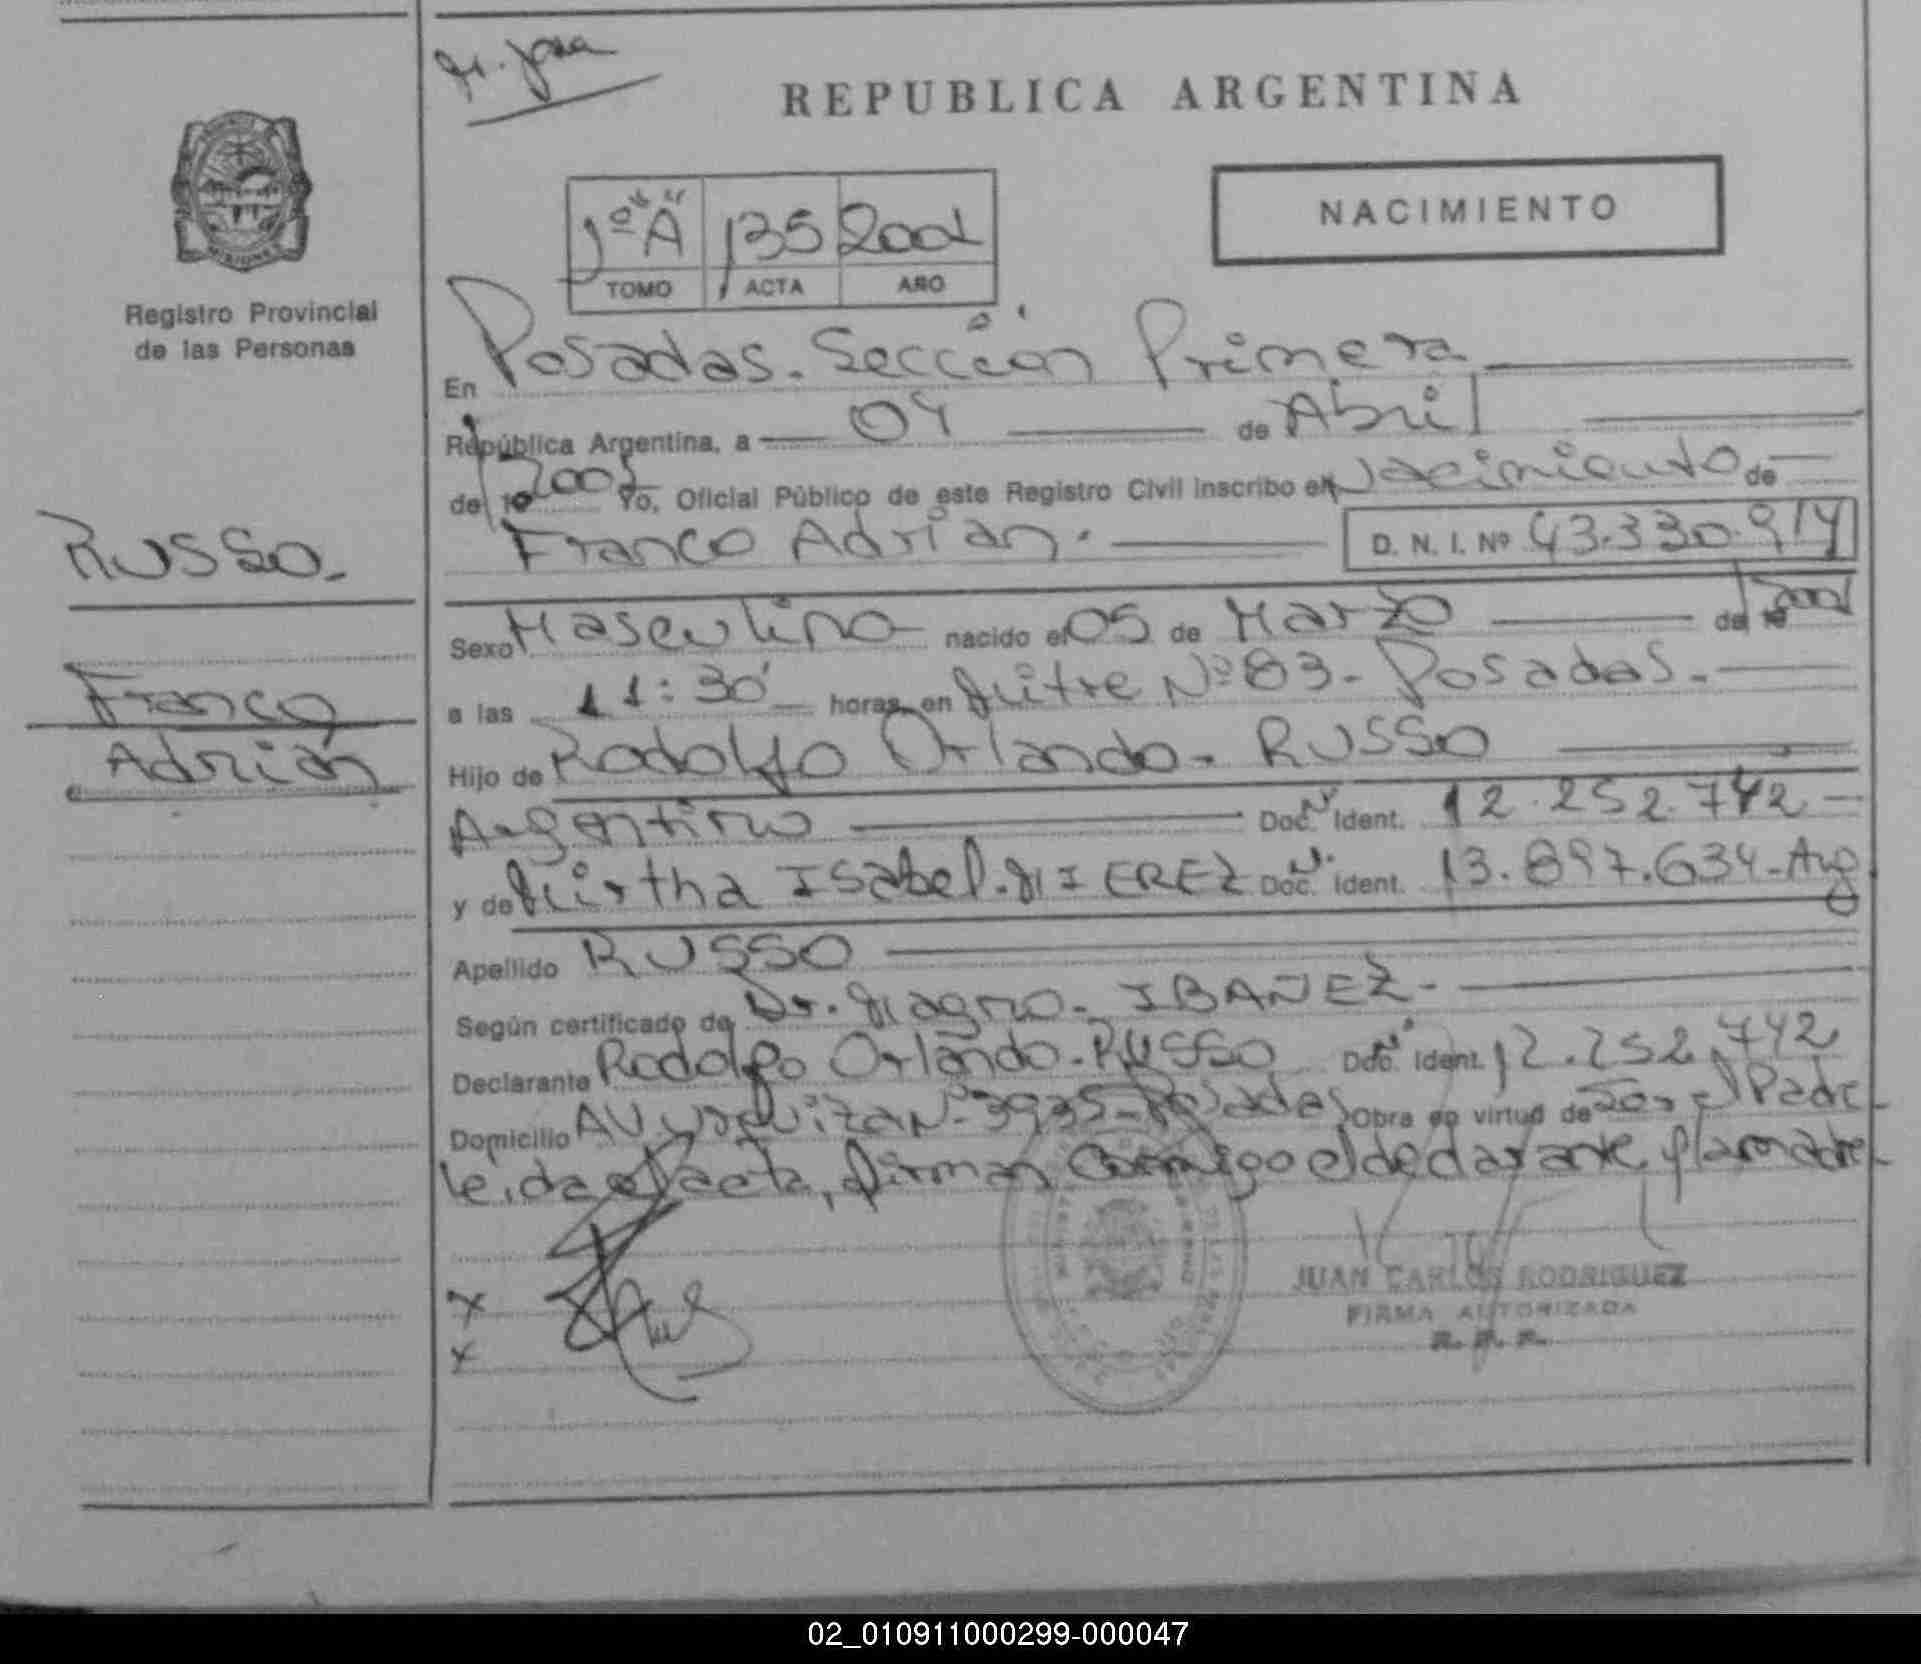 REPUBLICA ARGENTINA
NACIMIENTO
1º "A" 135 2001
TOMO ACTA AÑO
MISIONES
Registro Provincial
de las Personas
RUSSO.
Franco
Adrián
En Posadas. Sección Primera
República Argentina, a 04 de Abril
de 2001 Yo, Oficial Público de este Registro Civil inscribo el Nacimiento de
Franco Adrian. D. N. I. Nº 43.330.914
Sexo Masculino nacido el 05 de Marzo de 2001
a las 11:30 horas, en Mitre Nº 83 - Posadas.
Hijo de Rodolfo Orlando. RUSSO
Argentino Doc. Ident. 12.252.742
y de Mirtha Isabel. MIEREZ Doc. Ident. 13.897.634-Arg
Apellido RUSSO
Según certificado de Dr. Magno. IBAÑEZ.
Declarante Rodolfo Orlando. RUSSO Doc. Ident. 12.252.742
Domicilio AV Urquiza Nº 3935-Posadas Obra en virtud de Ser el Padre
leida el acta, firman conmigo el declarante y la madre
x
x
JUAN CARLOS RODRIGUEZ
FIRMA AUTORIZADA
R. P. P.
02_010911000299-000047